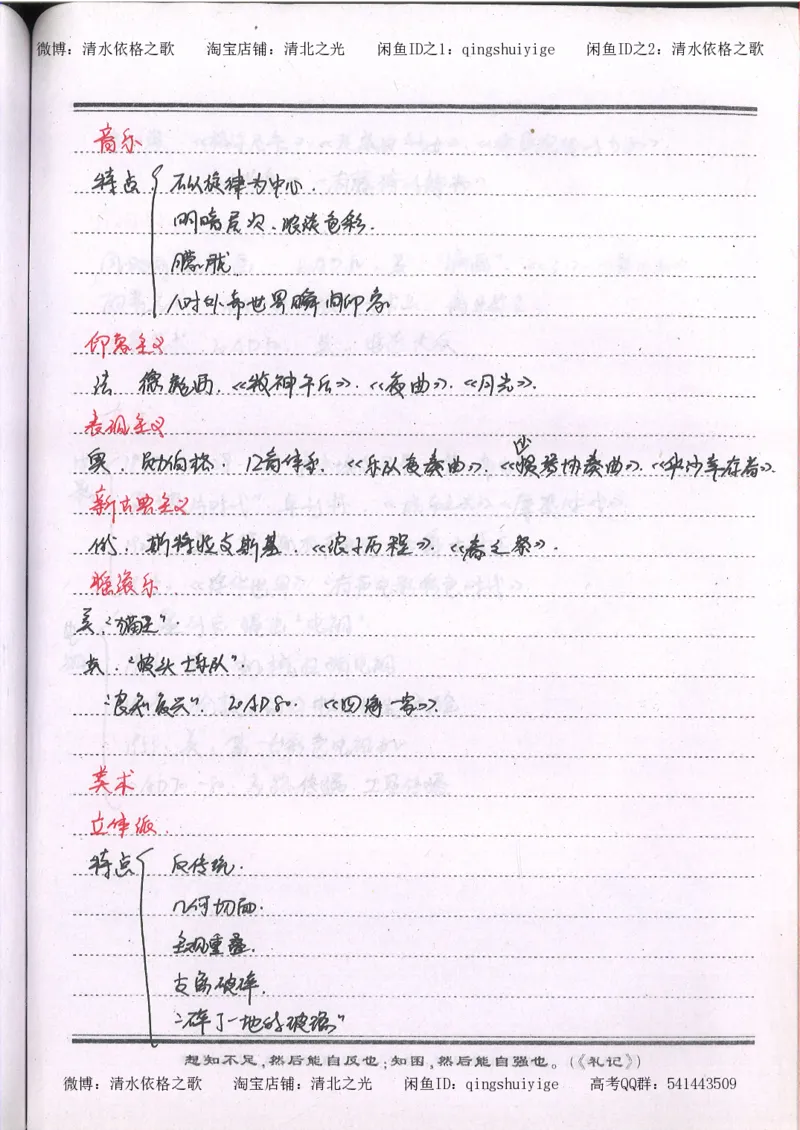 微博：清水依格之歌 淘宝店铺：清北之光 闲鱼ID之1：qingshuiyige 闲鱼ID之2：清水依格之歌
音乐
特点 不以旋律为中心.
明暗层次、浓淡色彩.
朦胧
人对外部世界瞬间印象
印象主义
法 德彪西.《牧神午后》.《夜曲》.《月光》.
表现主义
奥. 勋伯格. 12音体系.《乐队变奏曲》.《钢琴协奏曲》.《华沙幸存者》.
新古典主义
俄. 斯特拉文斯基.《浪子历程》.《春之祭》.
摇滚乐
美.“猫王”.
英.“披头士乐队”
20AD80.
美术
立体派.
特点 反传统.
几何切面.
重叠.
支离破碎.
“碎了一地的玻璃”
想知不足,然后能自反也;知困,然后能自强也。(《礼记》)
微博：清水依格之歌 淘宝店铺：清北之光 闲鱼ID：qingshuiyige 高考QQ群：541443509